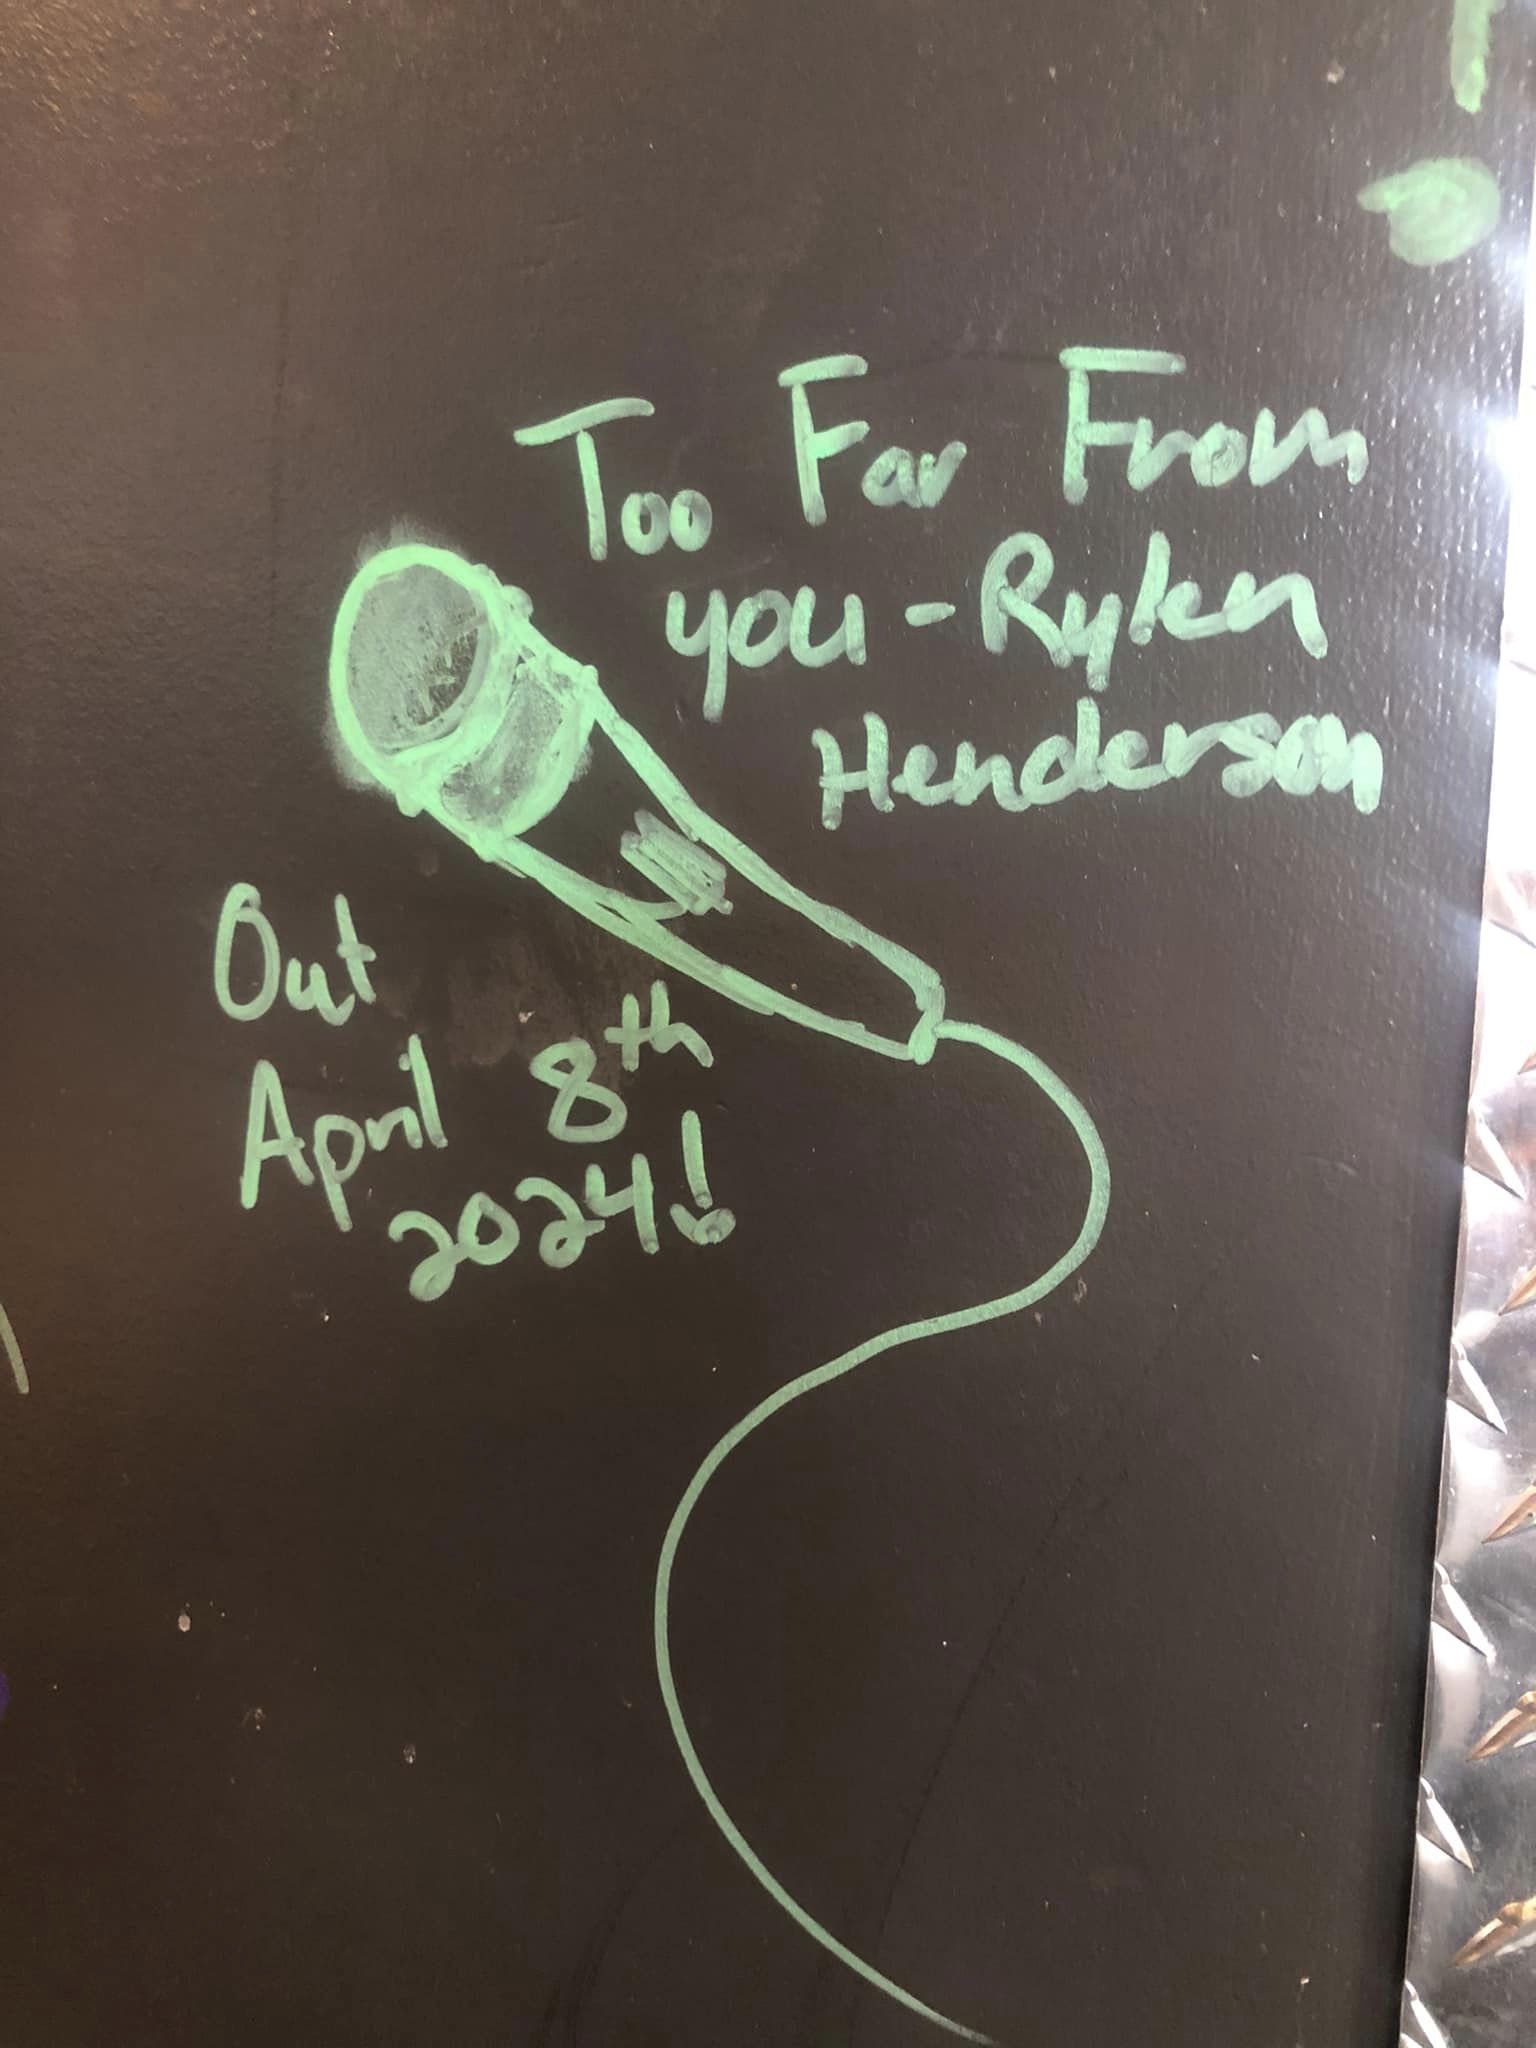 Too Far From
you - Rylen
Henderson
Out
April 8th
2024!